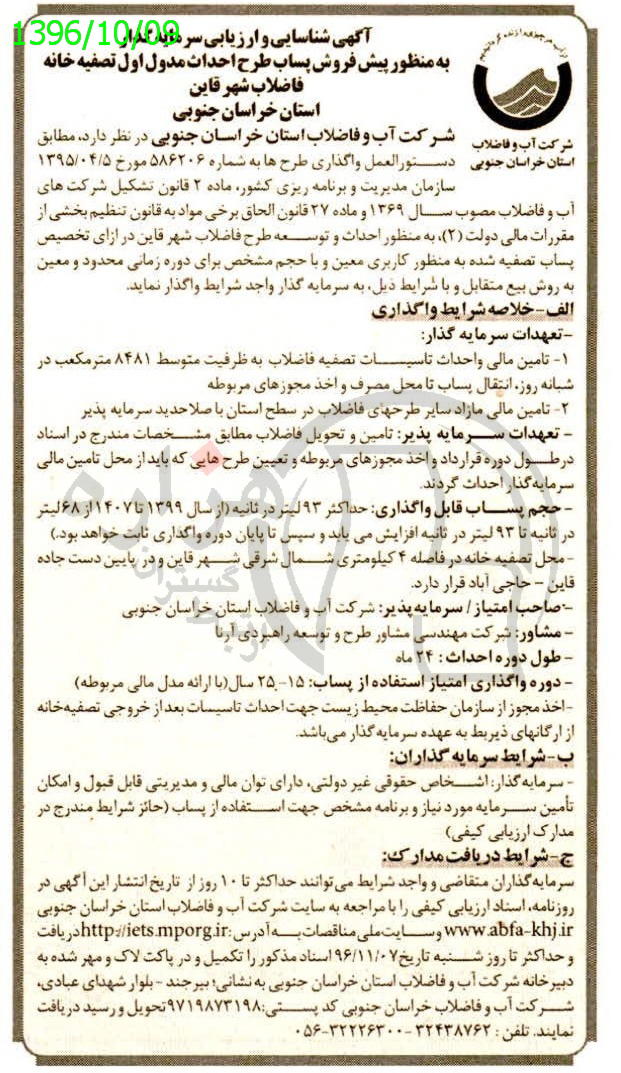 1396/10/09
آگهی شناسایی و ارزیابی سرمایه گذار
به منظور پیش فروش پساب طرح احداث مدول اول تصفیه خانه
فاضلاب شهر قاین
استان خراسان جنوبی
شرکت آب و فاضلاب
استان خراسان جنوبی
شرکت آب و فاضلاب استان خراسان جنوبی در نظر دارد، مطابق
دستورالعمل واگذاری طرح ها به شماره ۵۸۶۲۰۶ مورخ ۱۳۹۵/۰۴/۵
سازمان مدیریت و برنامه ریزی کشور، ماده ۲ قانون تشکیل شرکت های
آب و فاضلاب مصوب سال ۱۳۶۹ و ماده ۲۷ قانون الحاق برخی مواد به قانون تنظیم بخشی از
مقررات مالی دولت (۲)، به منظور احداث و توسعه طرح فاضلاب شهر قاین در ازای تخصیص
پساب تصفیه شده به منظور کاربری معین و با حجم مشخص برای دوره زمانی محدود و معین
به روش بیع متقابل و با شرایط ذیل، به سرمایه گذار واجد شرایط واگذار نماید.
الف-خلاصه شرایط واگذاری
-تعهدات سرمایه گذار:
۱- تامین مالی و احداث تاسیسات تصفیه فاضلاب به ظرفیت متوسط ۸۴۸۱ مترمکعب در
شبانه روز، انتقال پساب تا محل مصرف و اخذ مجوزهای مربوطه
۲- تامین مالی مازاد سایر طرحهای فاضلاب در سطح استان با صلاحدید سرمایه پذیر
- تعهدات سرمایه پذیر: تامین و تحویل فاضلاب مطابق مشخصات مندرج در اسناد
در طول دوره قرارداد و اخذ مجوزهای مربوطه و تعیین طرح هایی که باید از محل تامین مالی
سرمایه گذار احداث گردند.
- حجم پساب قابل واگذاری: حداکثر ۹۳ لیتر در ثانیه (از سال ۱۳۹۹ تا ۱۴۰۷ از ۶۸ لیتر
در ثانیه تا ۹۳ لیتر در ثانیه افزایش می یابد و سپس تا پایان دوره واگذاری ثابت خواهد بود.)
-محل تصفیه خانه در فاصله ۴ کیلومتری شمال شرقی شهر قاین و در پایین دست جاده
قاین - حاجی آباد قرار دارد.
-صاحب امتیاز / سرمایه پذیر: شرکت آب و فاضلاب استان خراسان جنوبی
- مشاور: شرکت مهندسی مشاور طرح و توسعه راهبردی آرنا
- طول دوره احداث : ۲۴ ماه
- دوره واگذاری امتیاز استفاده از پساب: ۱۵-۲۵ سال(با ارائه مدل مالی مربوطه)
-اخذ مجوز از سازمان حفاظت محیط زیست جهت احداث تاسیسات بعد از خروجی تصفیه خانه
از ارگانهای ذیربط به عهده سرمایه گذار می باشد.
ب-شرایط سرمایه گذاران:
- سرمایه گذار: اشخاص حقوقی غیر دولتی، دارای توان مالی و مدیریتی قابل قبول و امکان
تأمین سرمایه مورد نیاز و برنامه مشخص جهت استفاده از پساب (حائز شرایط مندرج در
مدارک ارزیابی کیفی)
ج-شرایط دریافت مدارک:
سرمایه گذاران متقاضی و واجد شرایط می توانند حداکثر تا ۱۰ روز از تاریخ انتشار این آگهی در
روزنامه، اسناد ارزیابی کیفی را با مراجعه به سایت شرکت آب و فاضلاب استان خراسان جنوبی
www.abfa-khj.ir و سایت ملی مناقصات به آدرس :http://iets.mporg.ir دریافت
و حداکثر تا روز شنبه تاریخ ۹۶/۱۱/۰۷ اسناد مذکور را تکمیل و در پاکت لاک و مهر شده به
دبیرخانه شرکت آب و فاضلاب استان خراسان جنوبی به نشانی؛ بیرجند - بلوار شهدای عبادی،
شرکت آب و فاضلاب خراسان جنوبی کد پستی: ۹۷۱۹۸۷۳۱۹۸ تحویل و رسید دریافت
نمایند. تلفن : ۳۲۴۳۸۷۶۲ - ۰۵۶-۳۲۲۲۶۳۰۰